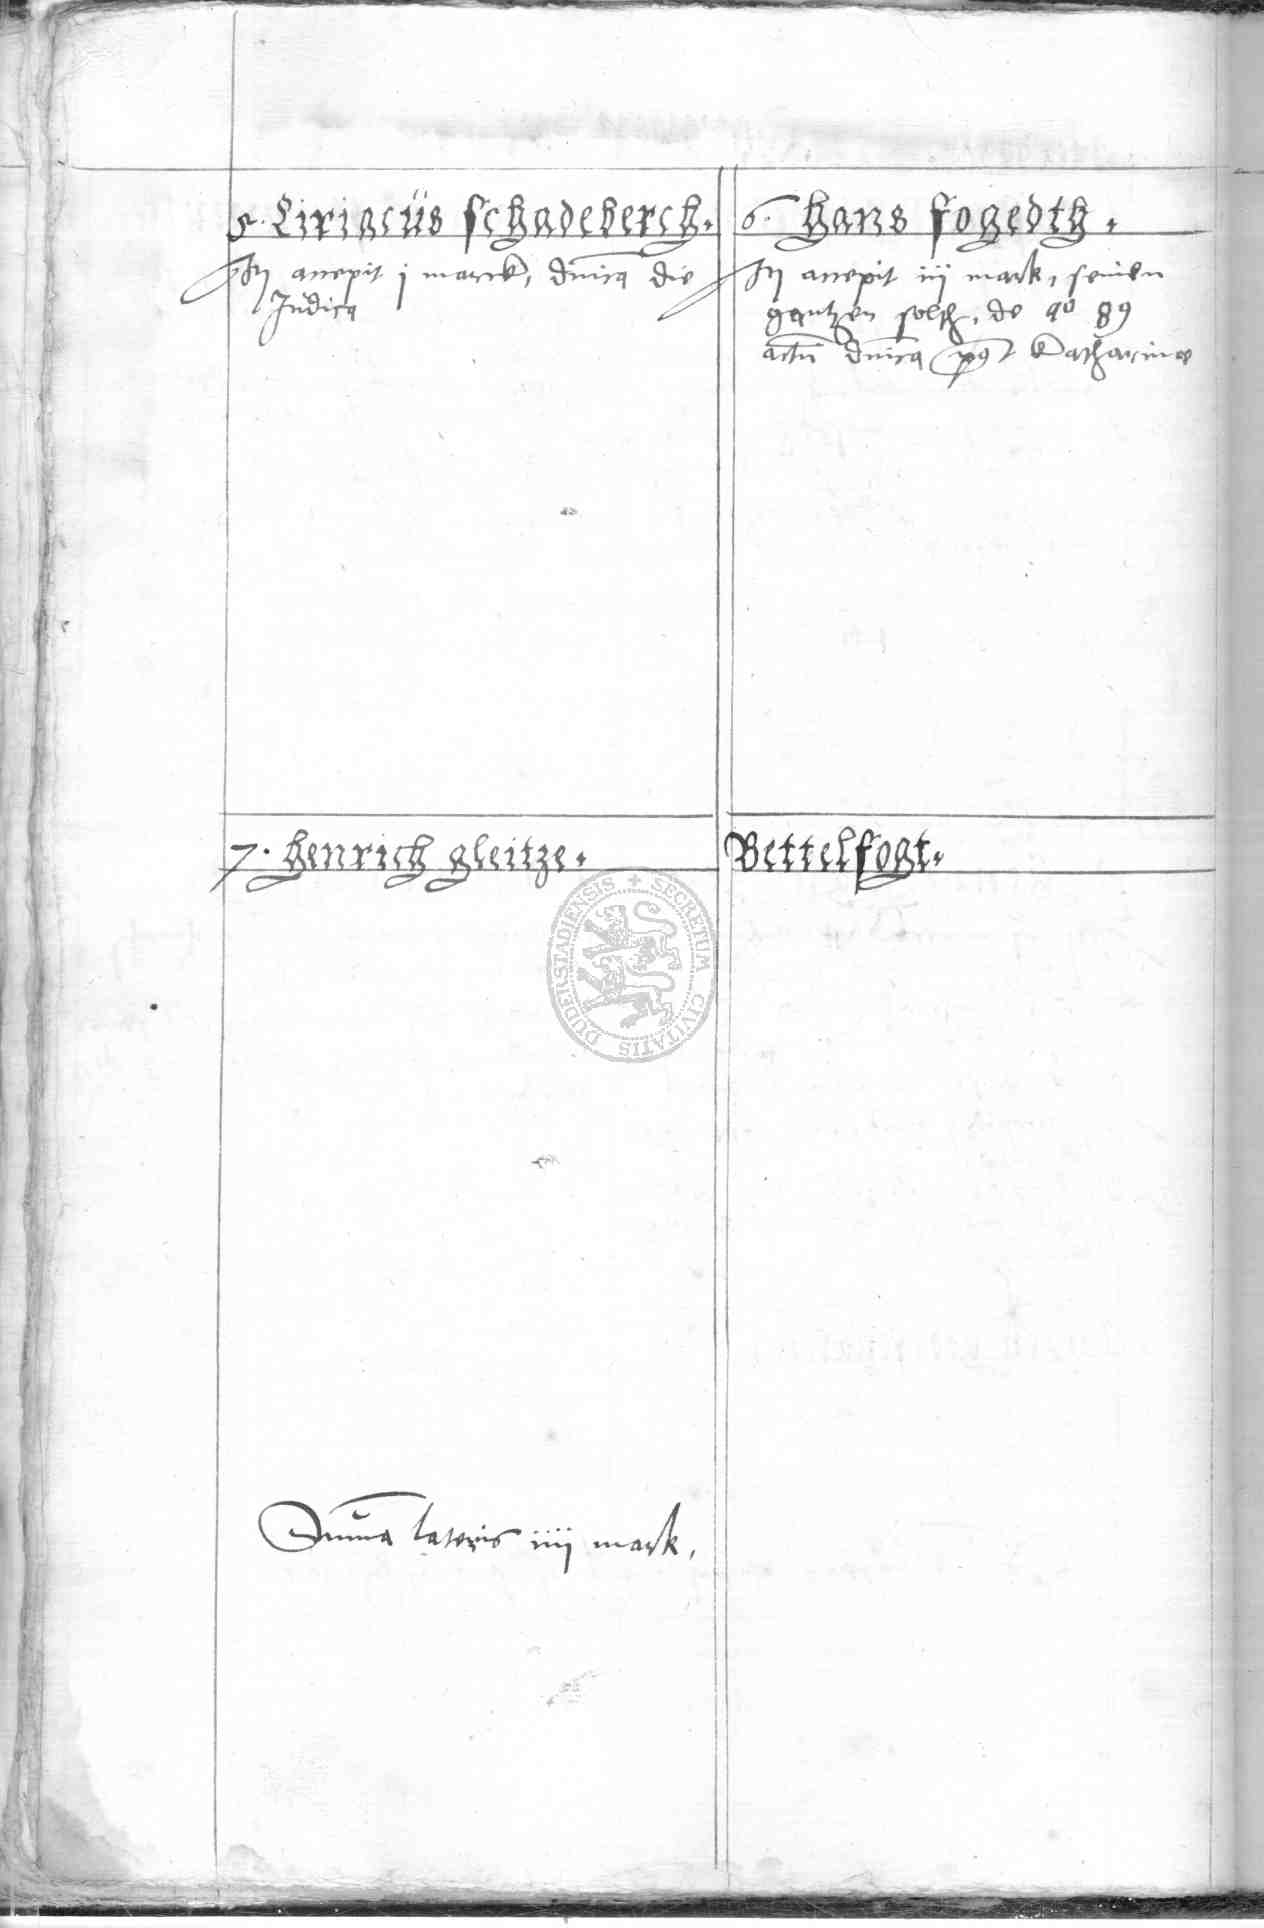 5. Ciriacüs schadeberch.
It accepit j marck, dnica die
Judica
6. Hans fogedth.
It accepit iij mark, seinen
gantzen solth, de ao 89
actu dnica post Katharinae
7. Henrich gleitze.
Bettelfogt.
SECRETUM CIVITATIS DUDERSTADIENSIS
Suma lateris iiij mark,